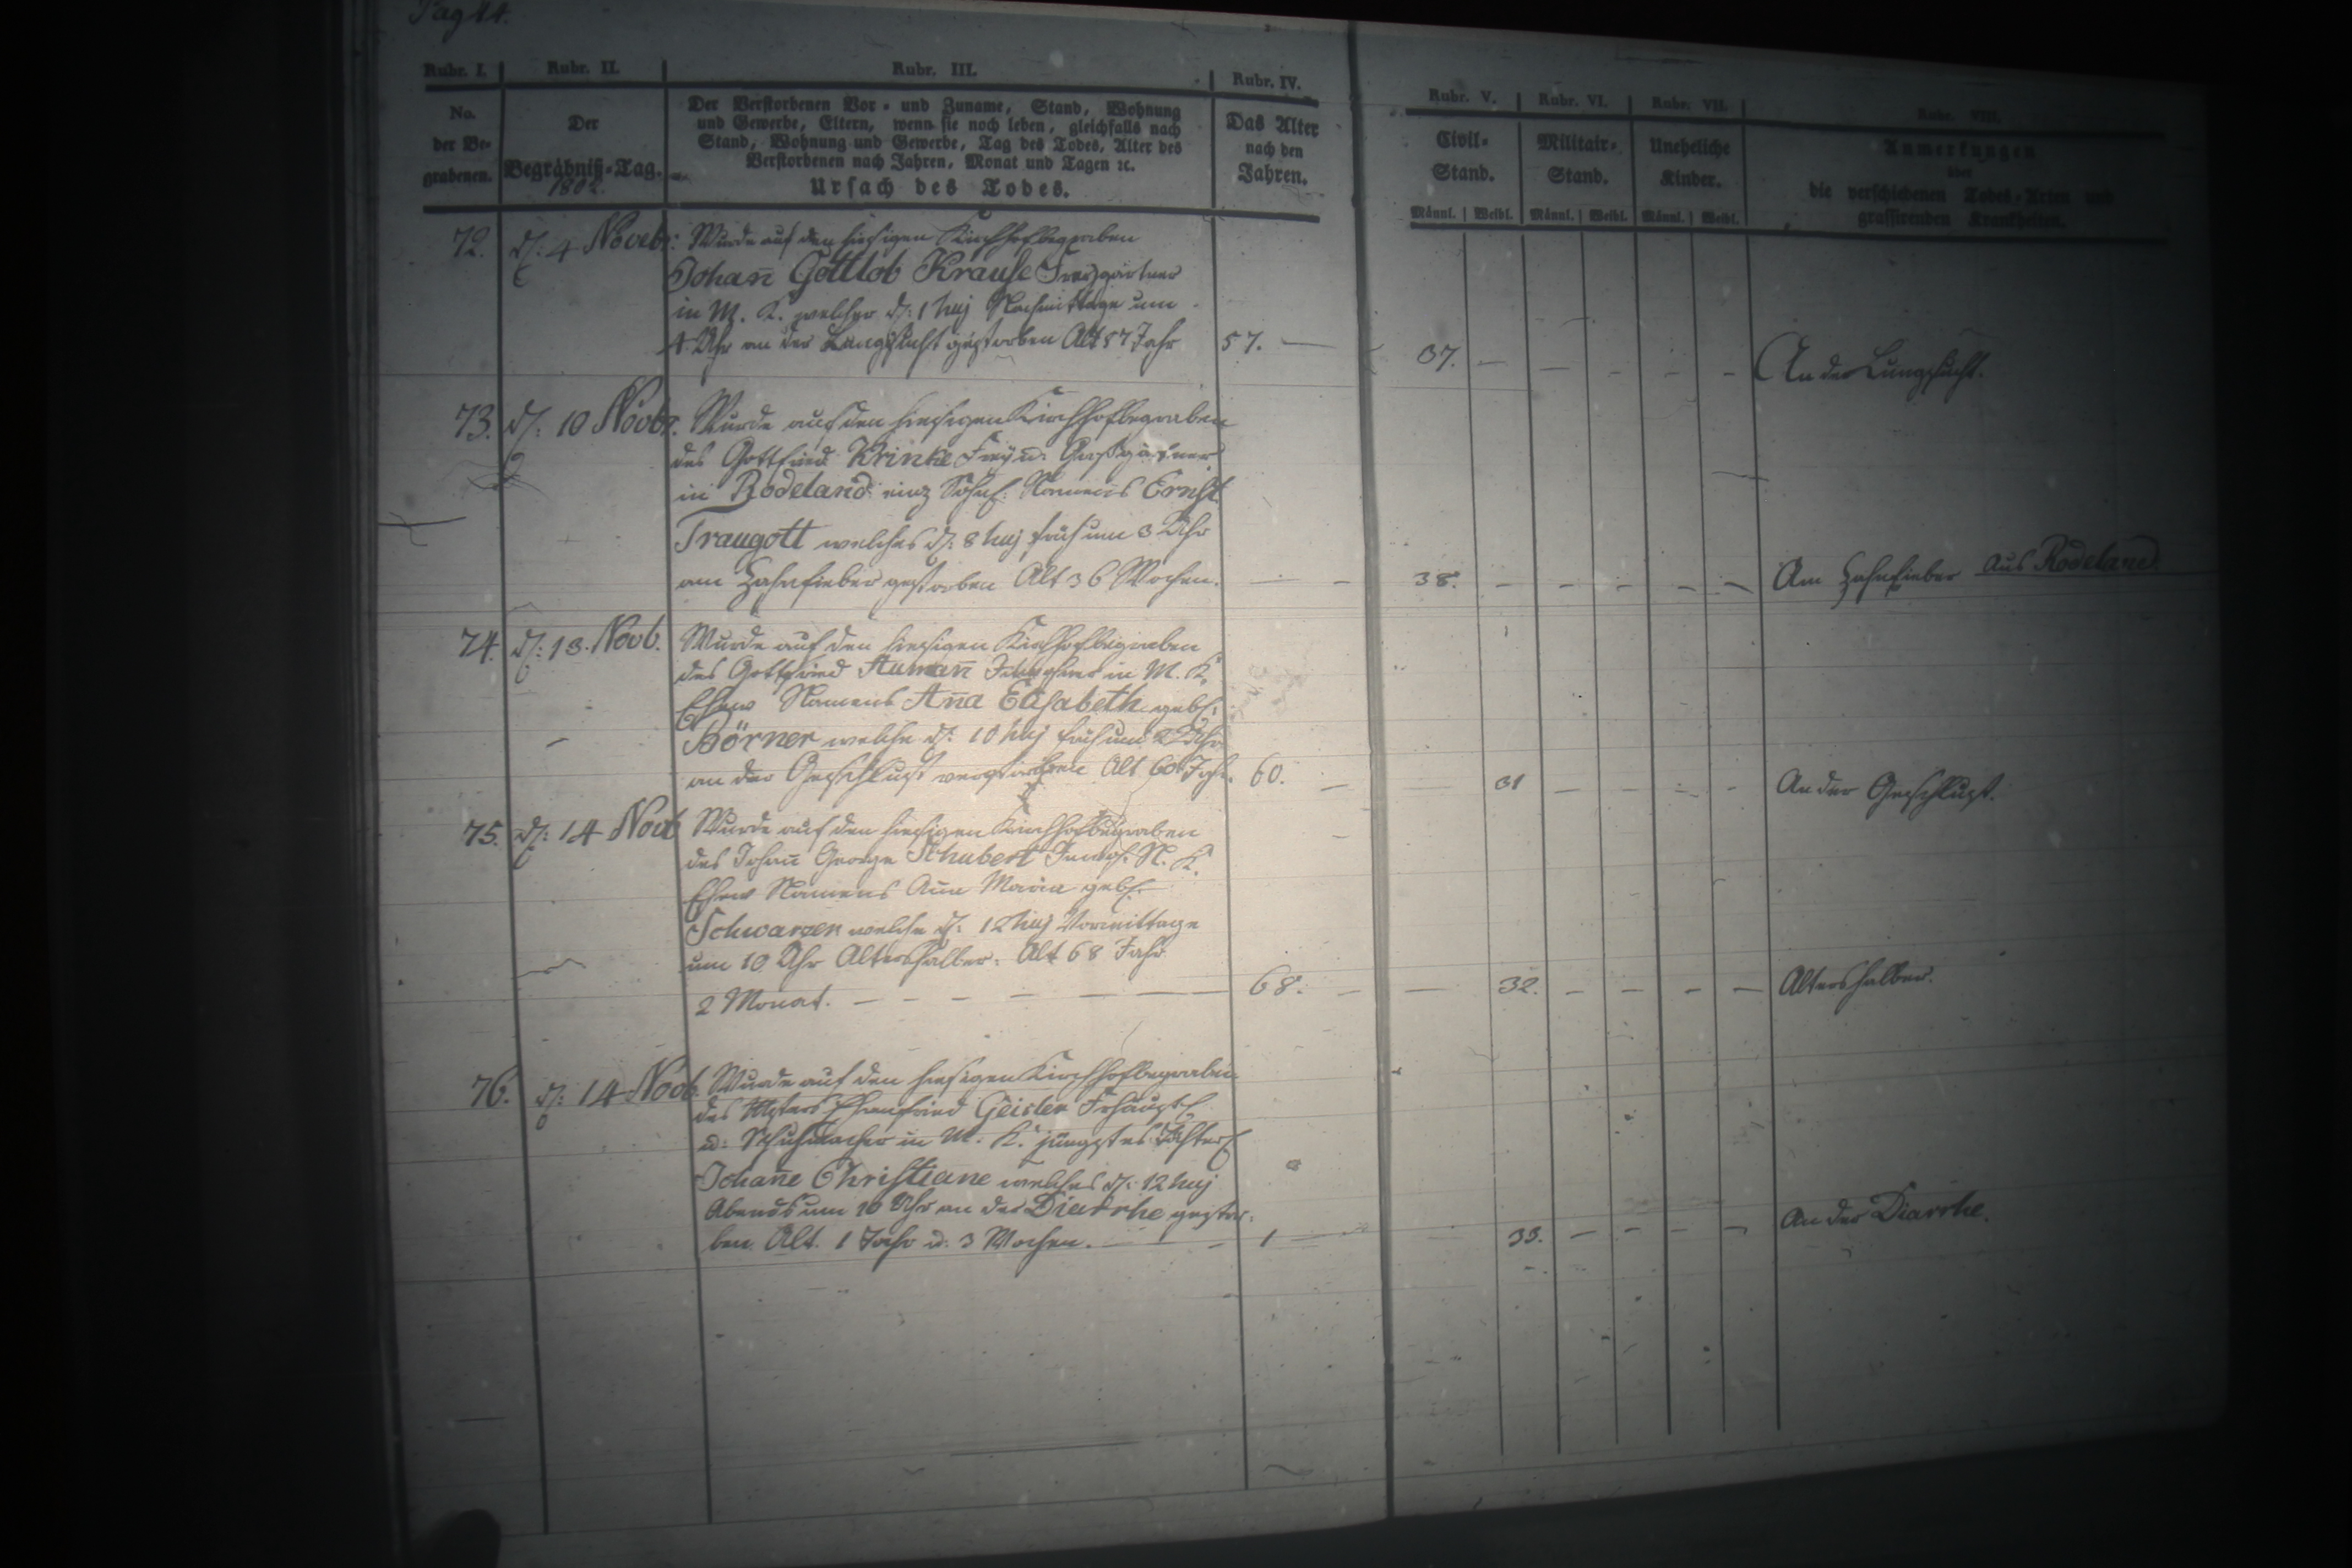 Pag 44.
Rubr. I. Rubr. II. Rubr. III. Rubr. IV. Rubr. V. Rubr. VI. Rubr. VII. Rubr. VIII.
No. der Be-grabenen.
Der Begräbniß-Tag.
1802.
Der Verstorbenen Vor- und Zuname, Stand, Wohnung
und Gewerbe, Eltern, wenn sie noch leben, gleichfalls nach
Stand, Wohnung und Gewerbe, Tag des Todes, Alter des
Verstorbenen nach Jahren, Monat und Tagen ꝛc.
Ursach des Todes.
Das Alter
nach den
Jahren.
Civil-
Stand.
Militair-
Stand.
Uneheliche
Kinder.
Männl. Weibl. Männl. Weibl. Männl. Weibl.
Anmerkungen
über
die verschiedenen Todes-Arten und
grassirenden Krankheiten.
72. d: 4 Novebr: Wurde auf den hiesigen Kirchhof begraben
Johan̄ Gottlob Krause Freygärtner
in M. K. welcher d: 1 huj Nachmittage um
4 Uhr an der Lungsucht gestorben Alt 57 Jahr 57. — 37. An der Lungsucht.
73. d: 10 Novbr. Wurde auf den hiesigen Kirchhof begraben
des Gottfried Krinke Frey u:
in Rodeland Namens Ernst
Traugott welches d: 8 huj früh um 3 Uhr
am Zahnfieber gestorben Alt 36 Wochen. 38. Am Zahnfieber aus Rodeland
74. d: 13. Novb. Wurde auf den hiesigen Kirchhof begraben
des Gottfried Auman̄ in M. K.
Ehew Namens An̄a Elisabeth geb:
Börner welche d: 10 huj früh um 2 Uhr
an der Geschwulst verstorben Alt 60 Jahr. 60. 31 An der Geschwulst.
75. d: 14 Novb Wurde auf den hiesigen Kirchhof begraben
des Johan̄ George Schubert N. K.
Ehew Namens An̄a Maria geb:
Schwarzer welche d: 12 huj Vormittage
um 10 Uhr Altershalber. Alt 68 Jahr
2 Monat. 68. 32. Altershalber.
76. d: 14 Novb. Wurde auf den hiesigen Kirchhof begraben
des Msters Ehrenfried Geisler
u: Schuhmacher in M. K. jüngstes
Johan̄e Christiane welches d: 12 huj
Abends um 10 Uhr an der Diarrhe gestor-
ben. Alt. 1 Jahr u: 3 Wochen. 1 33. An der Diarrhe.